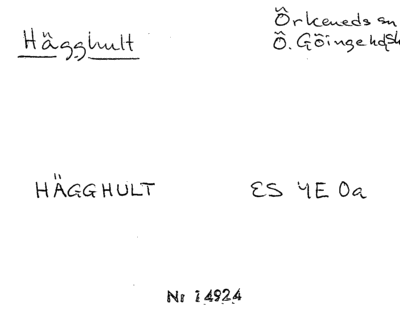 Hägghult
Örkeneds sn
Ö. Göinge hdsk
HÄGGHULT ES 4E 0a
Nr 14924